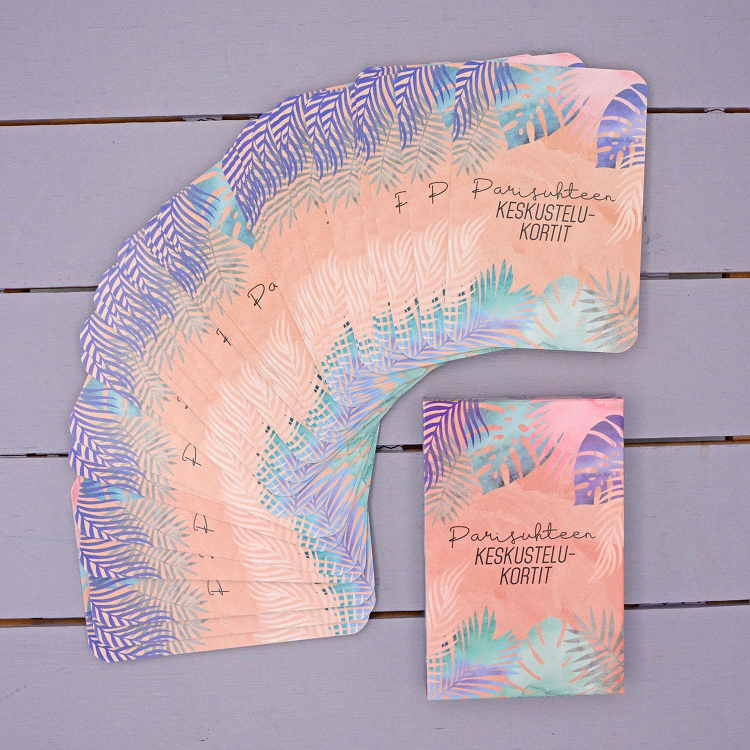 Parisuhteen
KESKUSTELU-
KORTIT
P
Pa
Parisuhteen
KESKUSTELU-
KORTIT